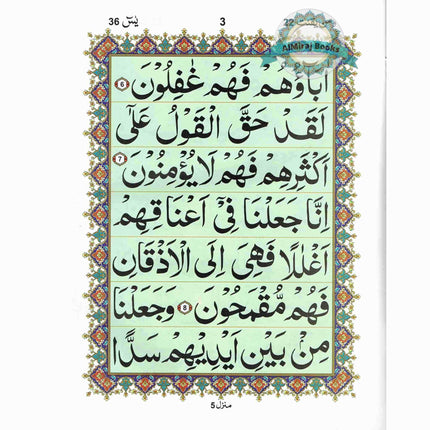 يٰسٓ 36
3
22
AlMiraj Books
اٰبَآؤُهُمْ فَهُمْ غٰفِلُوْنَ 6
لَقَدْ حَقَّ الْقَوْلُ عَلٰٓى
اَكْثَرِهِمْ فَهُمْ لَا يُؤْمِنُوْنَ 7
اِنَّا جَعَلْنَا فِىْٓ اَعْنَاقِهِمْ
اَغْلٰلًا فَهِىَ اِلَى الْاَذْقَانِ
فَهُمْ مُّقْمَحُوْنَ 8 وَجَعَلْنَا
مِنْۢ بَيْنِ اَيْدِيْهِمْ سَدًّا
منزل 5